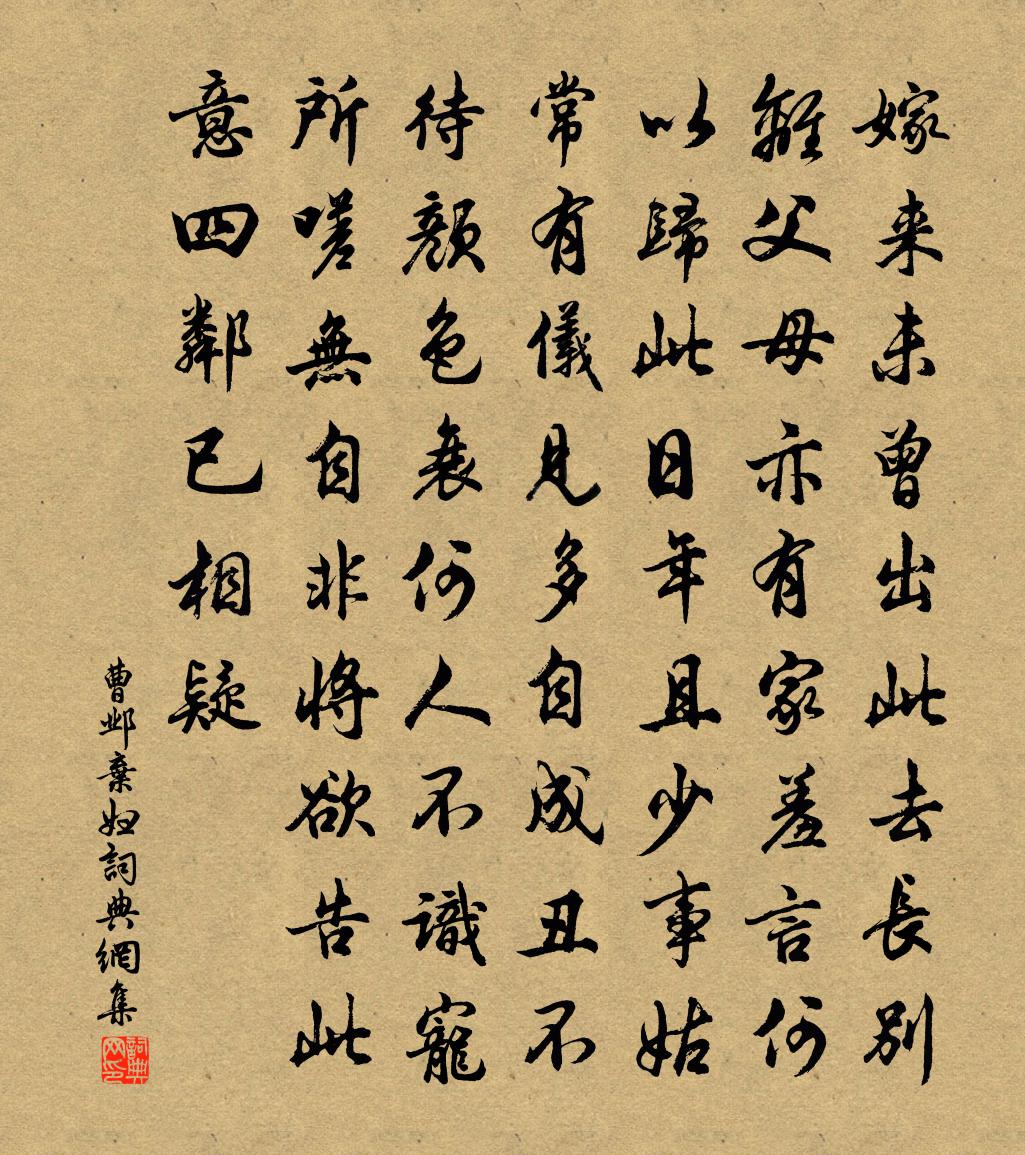 嫁来未曾出此去長别
離父母亦有家羞言何
以歸此日年且少事姑
常有儀見多自成丑不
待顏色衰何人不識寵
所嗟無自非將欲告此
意四鄰已相疑
曹邺棄妇詞典網集
詞典网印